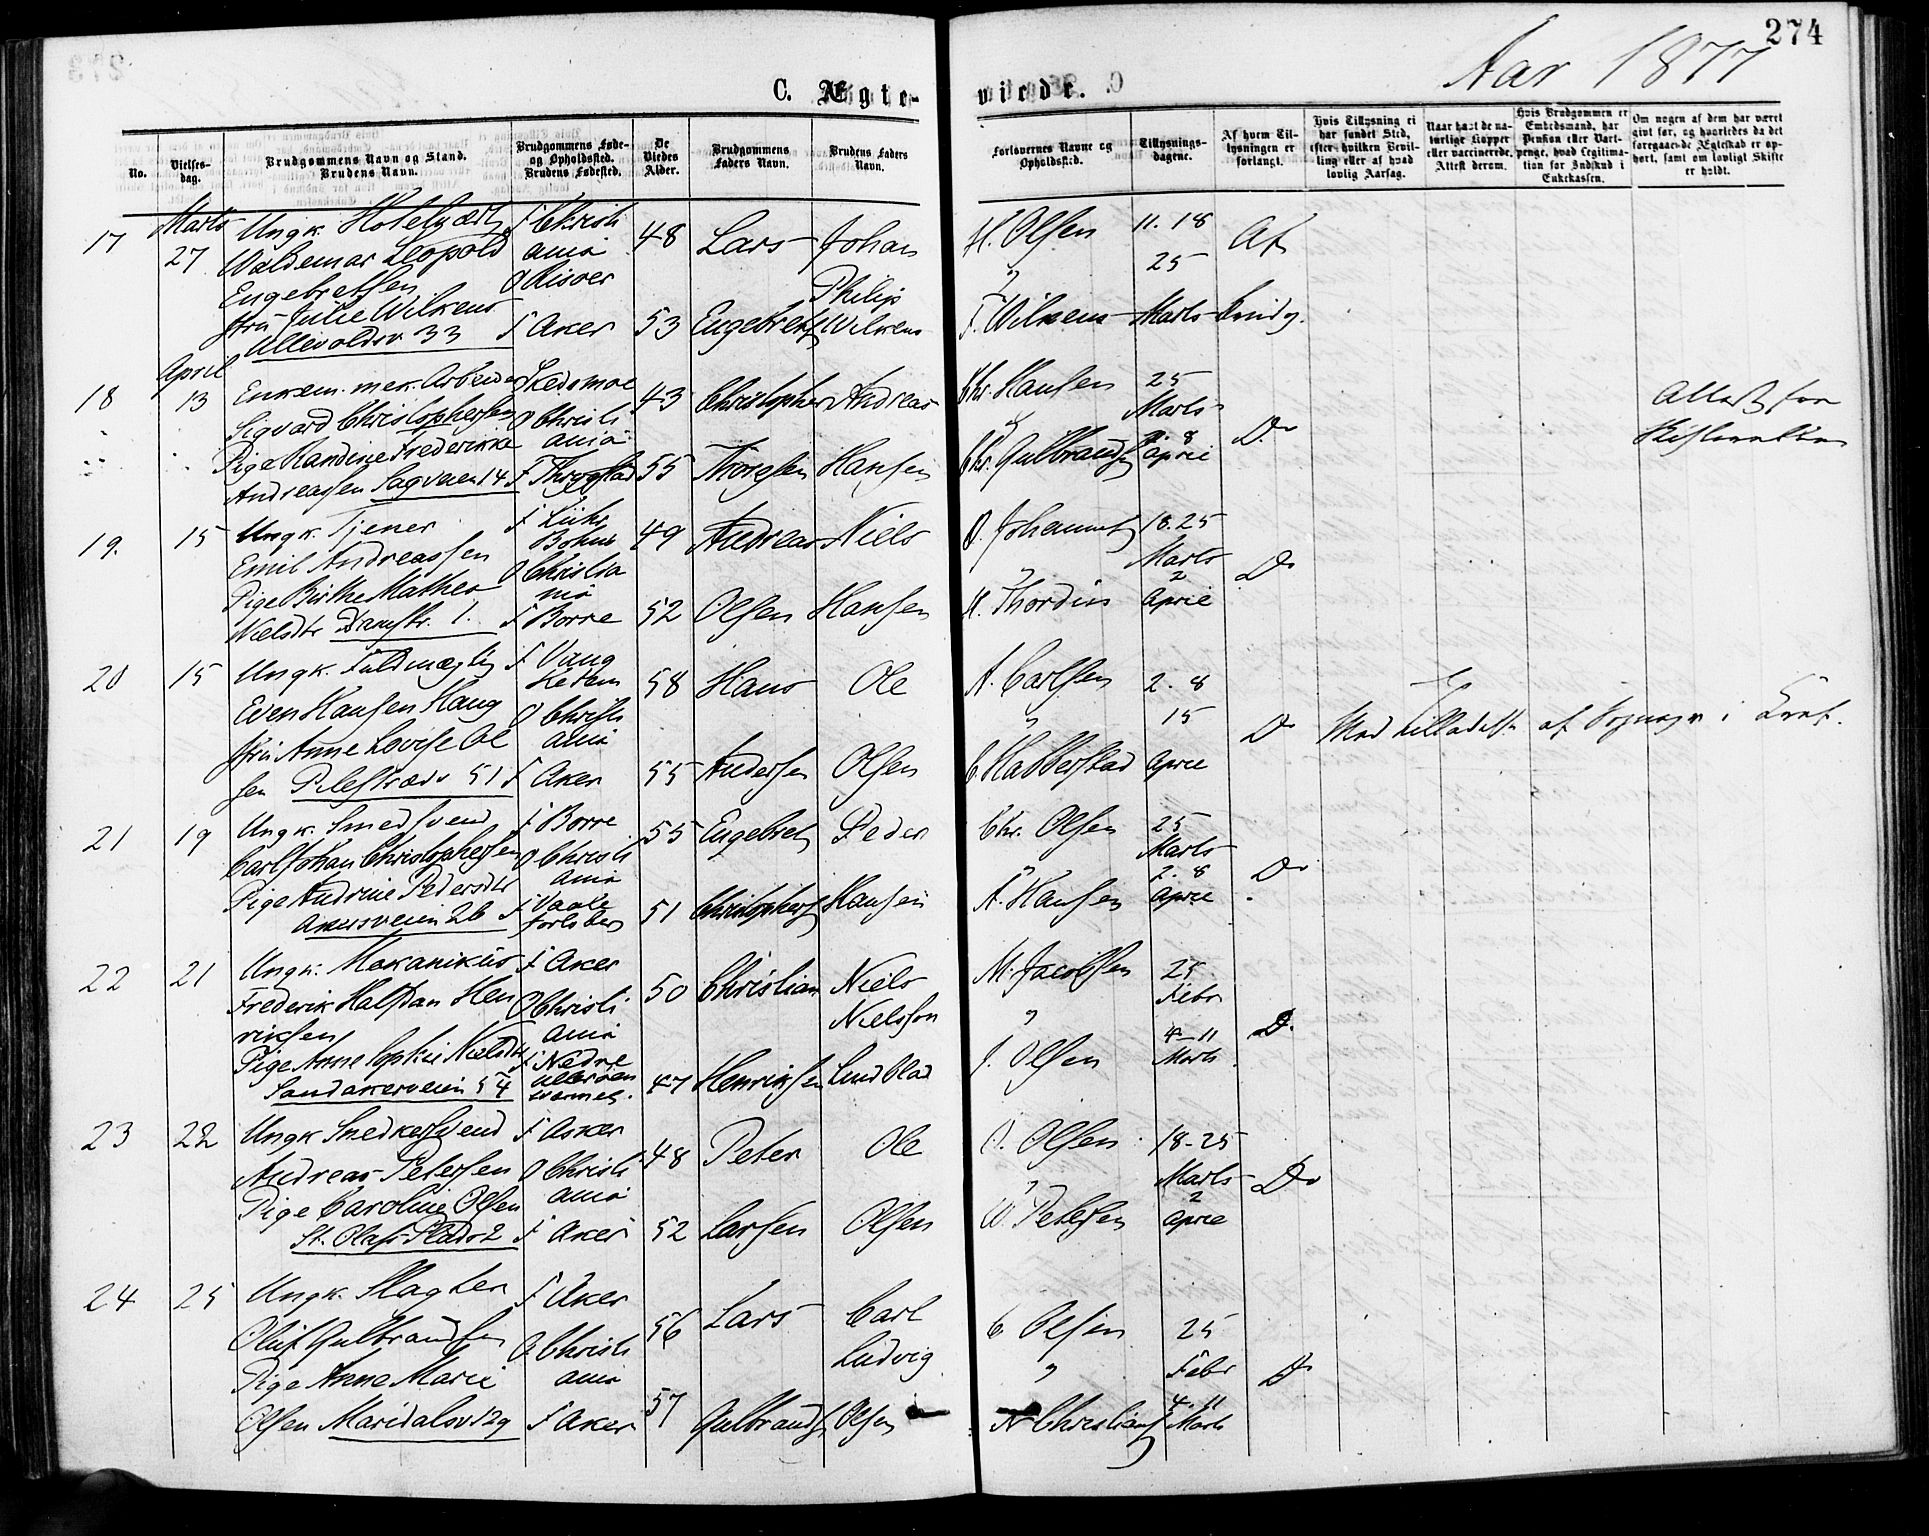 274
Aar 1877
C. Ægte-
viede.
No.
Vielses-
dag.
Brudgommens Navn og Stand.
Brudens Navn.
Brudgommens Føde-
og Opholdssted.
Brudens Fødested.
De
Viedes
Alder.
Brudgommens
Faders Navn.
Brudens Faders
Navn.
Forlovernes Navne og
Opholdssted.
Tillysnings-
dagene.
Af hvem Til-
lysningen er
forlangt.
Hvis Tillysning ei
har fundet Sted,
efter hvilken Bevil-
ling eller af hvad
lovlig Aarsag.
Naar havt de na-
turlige Kopper
eller vaccinerede,
Attest derom.
Hvis Brudgommen er
Embedsmand, har
Pension eller Vart-
penge, hvad Legitima-
tion for Indskud i
Enkekassen.
Om nogen af dem har været
givt før, og hvorledes da det
foregaaende Ægteskab er op-
hørt, samt om lovligt Skifte
er holdt.
17 Marts 27 Ungk. Hotelvært F Christi 48 Lars Johan H. Olsen 11. 18 Af
Waldemar Leopold ania 25
Engebretsen O Risoer Philip "
Frk Julie Wilkens F Aker 53 Engebrets Wilkens F. Wilkens Marts
Ullevoldsv 33
18 April 13 Enkem. mek. Arbeider Skedsmoe 43 Christopher Andreas Chr. Hansen 25
Sigvard Christophersen O Christi Marts Attest fra
Pige Randine Frederikke ania " 2. 8 Do Skifteretten
Andreasen Sagveien 14 F Thrygstad 55 Thorsen Hansen Chr. Gulbrandsen April
19. 15 Ungk. Tjener F 49 Andreas Niels O. Johannes 18. 25
Emil Andreassen Bohus Marts
Pige Birthe Mathea O Christia " 2 Do
Nielsdtr 1. nia
F Borre 52 Olsen Hansen H. Thordin April
20 15 Ungk. Fuldmægtig F Vang 58 Hans Ole A. Carlsen 2. 8
Even Hansen Haug Hedem " 15
Frk Anne Lovise Ol O Christi Do Med tilladelse af Sognepr i
sen Pilestræde 51 ania
F Aker 55 Andersen Olsen C. Habberstad April
21 19 Ungk. Smedsvend F Borre 55 Engebret Peder Chr. Olsen 25
Carl Johan Christophersen O Christi Marts
Pige Andrine Pedersdtr ania " 2. 8 Do
Akersveien 26 F Vaale 51 Christophers Hansen A. Hansen April
Jarlsberg
22 21 Ungk. Mekanikus F Aker 50 Christian Niels M. Jacobsen 25
Frederik Halfdan Hen O Christi Nielsson Febr
riksen ania "
Pige Anne Sophie Nielsdtr F Nedre 47 Henriksen Lundblad J. Olsen 4-11 Do
Sandakerveien 54 Marts
23 22 Ungk Snedkersvend F Asker 48 Peter Ole O. Olsen 18-25
Andreas Petersen O Christi Marts Do
Pige Caroline Olsen ania " 2
St. Olafs Plads 2 F Aker 52 Larsen Olsen W. Petersen April
24 25 Ungk. Slagter F Aker 56 Lars Carl C Olsen 25
Oluf Gulbrandsen O Christi Ludvig Febr
Pige Anne Marie ania " Do
Olsen Maridalsv 129 F Aker 57 Gulbrands Olsen N Christians 4. 11
Marts